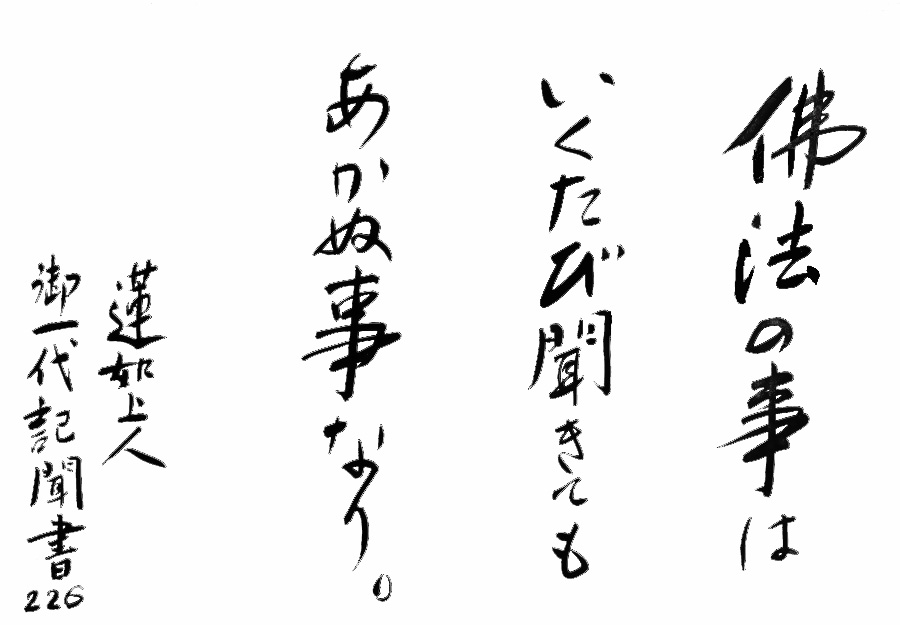 佛法の事は
いくたび聞きても
あかぬ事なり。
蓮如上人
御一代記聞書
226